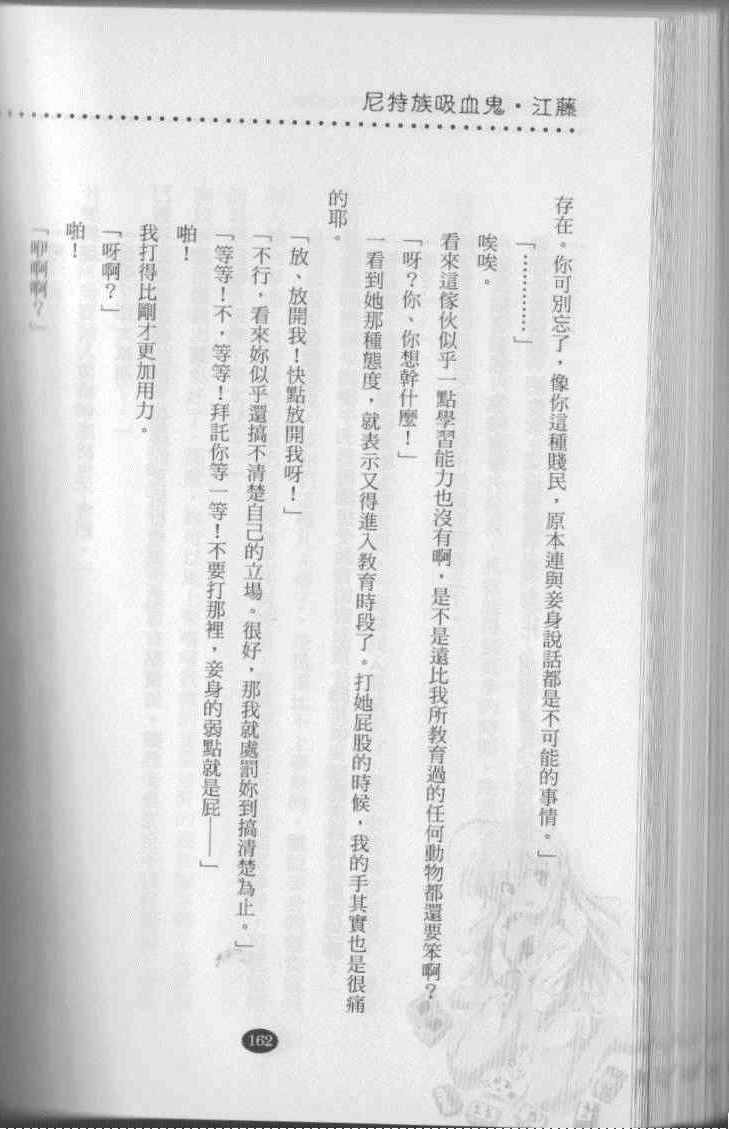 尼特族吸血鬼・江藤
存在。你可別忘了，像你這種賤民，原本連與妾身說話都是不可能的事情。」
「…………」
唉唉。
看來這傢伙似乎一點學習能力也沒有啊，是不是遠比我所教育過的任何動物都還要笨啊？
「呀？你、你想幹什麼！」
一看到她那種態度，就表示又得進入教育時段了。打她屁股的時候，我的手其實也是很痛
的耶。
「放、放開我！快點放開我呀！」
「不行，看來妳似乎還搞不清楚自己的立場。很好，那我就處罰妳到搞清楚為止。」
「等等！不，等等！拜託你等一等！不要打那裡，妾身的弱點就是屁——」
啪！
我打得比剛才更加用力。
「呀啊？」
啪！
「咿啊啊？」
162